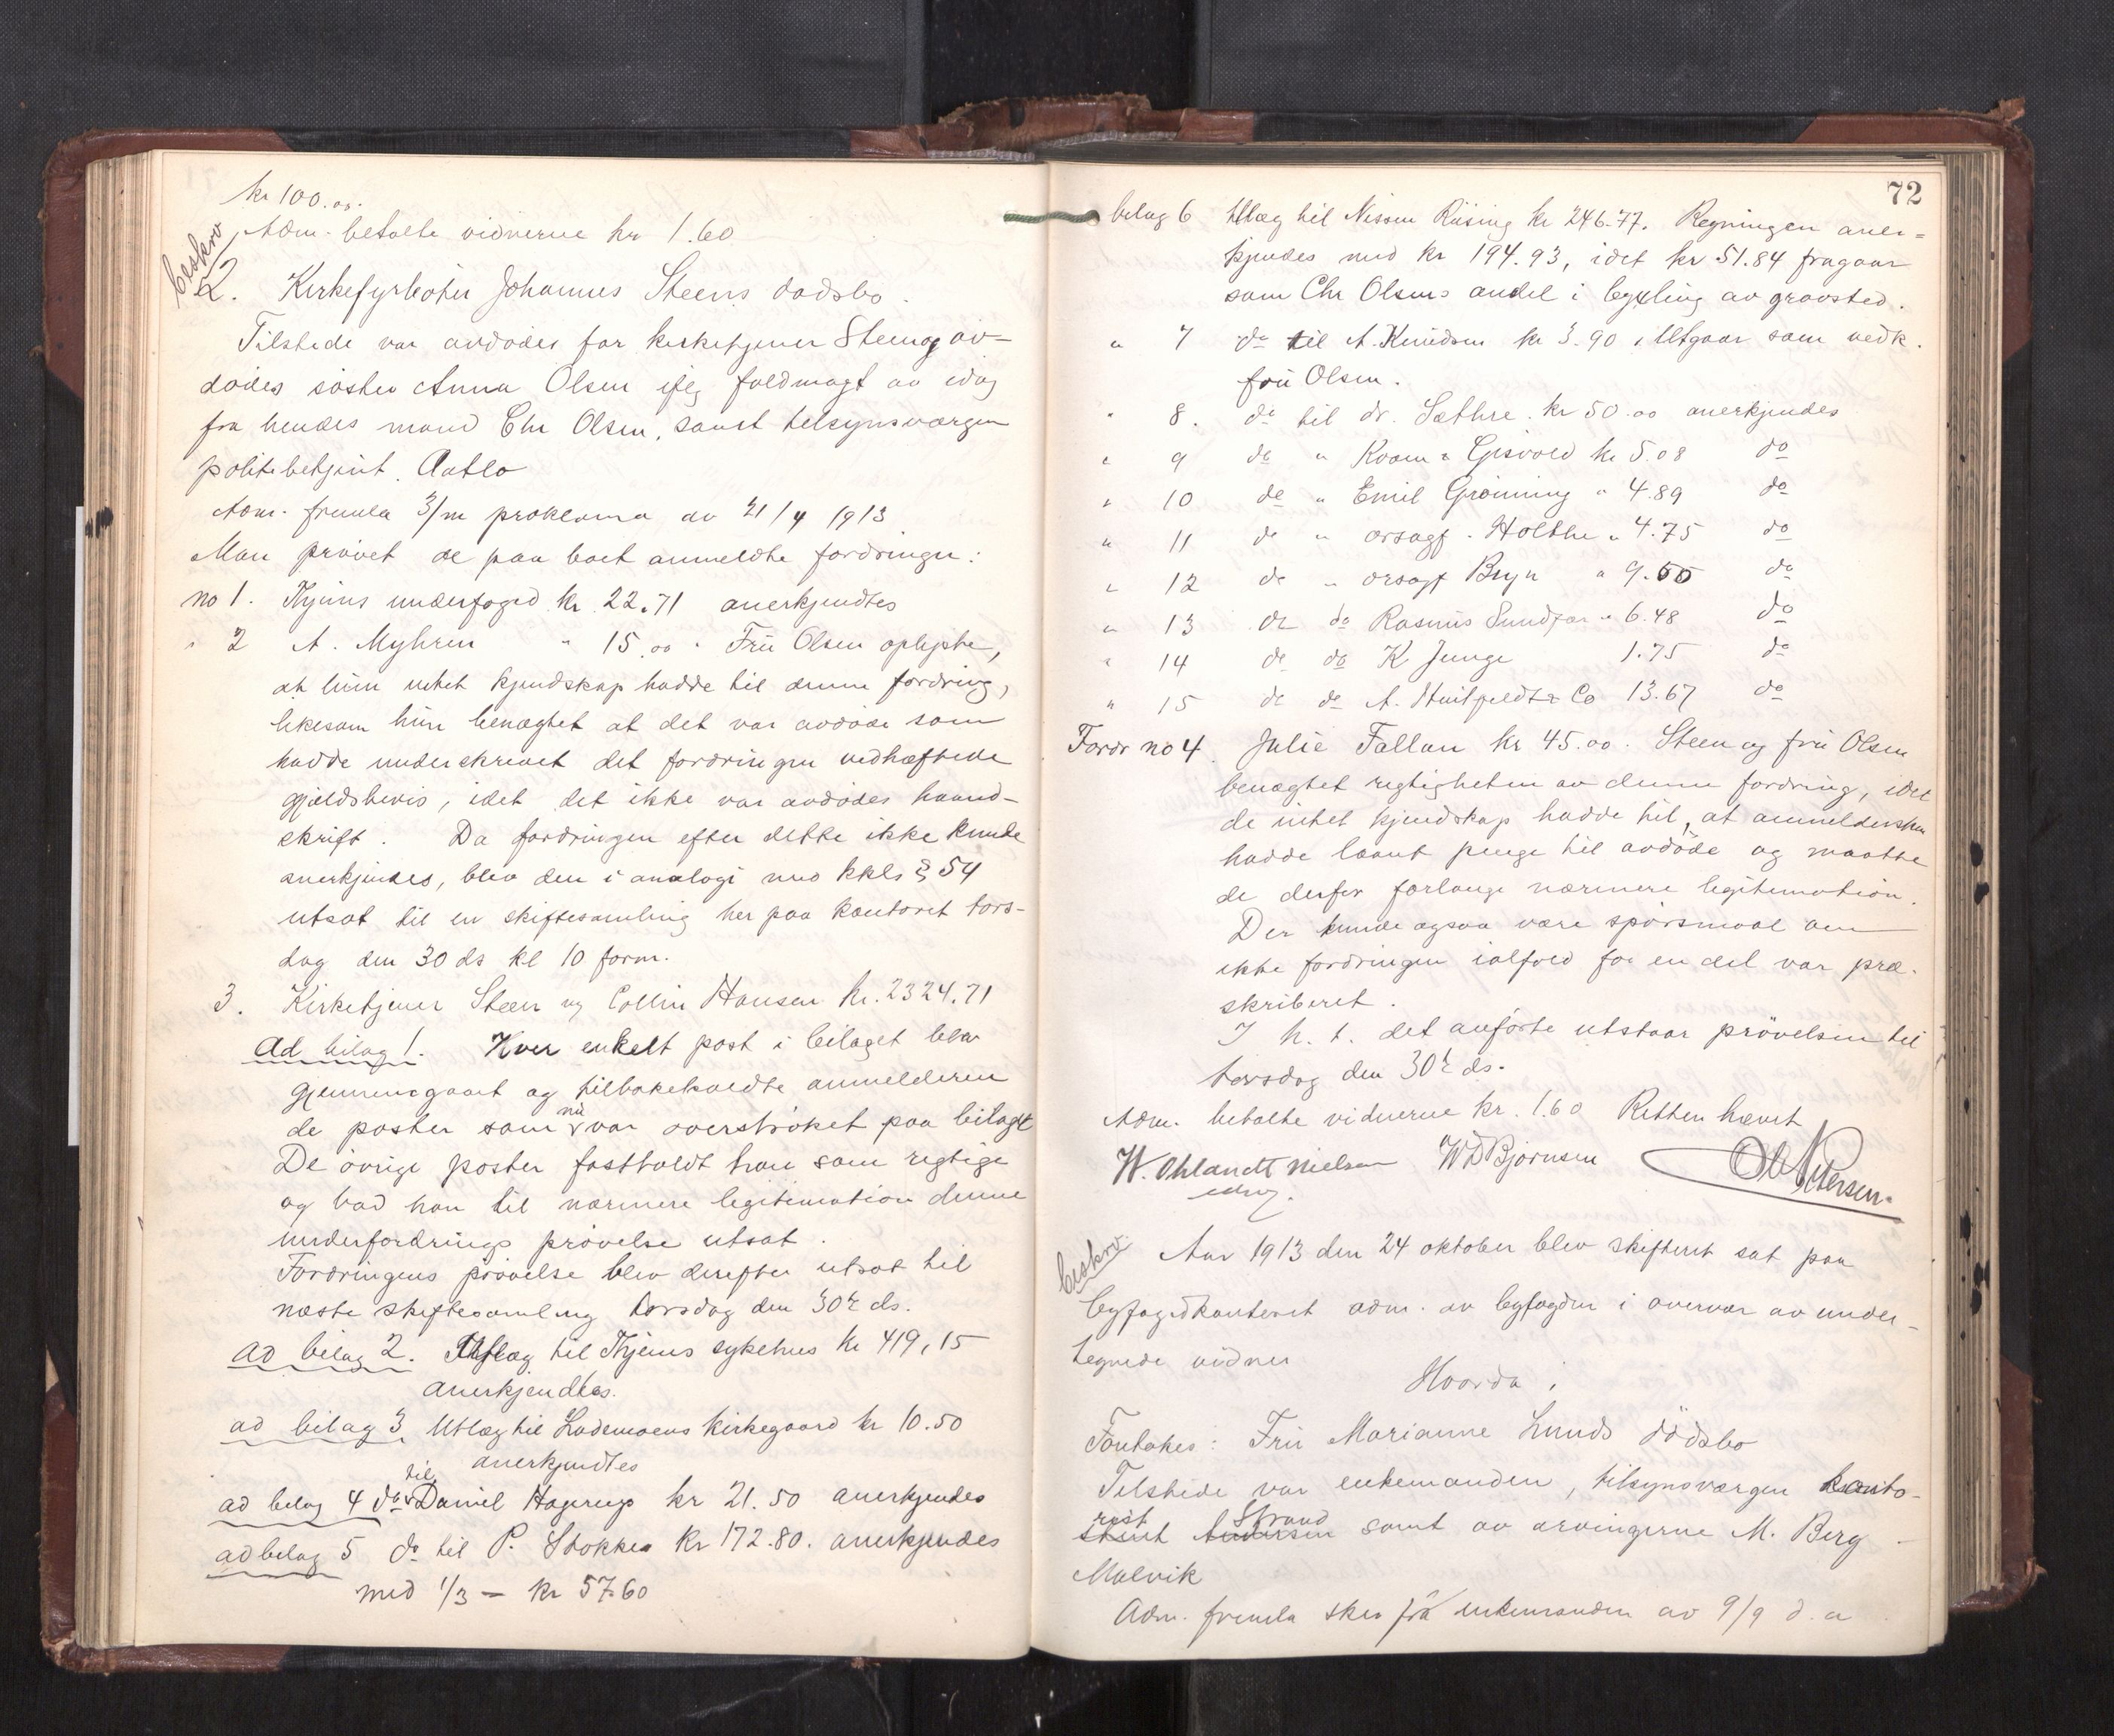 kr 100.00.
Adm. betalte vidnerne kr 1.60
beskrev
2. Kirkefyrbøter Johannes Steens dødsbo.
Tilstede var avdødes far kirketjener Steen og av-
dødes søster Anna Olsen iflg fuldmagt av idag
fra hendes mand Chr Olsen, samt tilsynsværgen
politibetjent Aatlo
Adm. fremla 3/m proklama av 21/4 1913
Man prøvet de paa boet anmeldte fordringer:
no 1. Thjems underfoged kr. 22.71 anerkjendtes
" 2 A. Myhren " 15.00. Fru Olsen oplyste,
at hun intet kjendskap hadde til denne fordring,
likesom hun benægtet at det var avdøde som
hadde underskrevet det fordringen vedhæftede
gjældsbevis, idet det ikke var avdødes haand-
skrift. Da fordringen efter dette ikke kunde
anerkjendes, blev den i analogi med kkl § 54
utsat til en skiftesamling her paa kontoret tors-
dag den 30 ds kl 10 form.
3. Kirketjener Steen og Collin Hansen kr. 2324.71
Ad bilag 1. Hver enkelt post i bilaget blev
gjennemgaaet og tilbakeholdte anmelderen
de poster som nu var overstrøket paa bilaget
De øvrige poster fastholdt han som regtige
og bad han til nærmere legitimation denne
underfordrings prøvelse utsat.
Fordringens prøvelse blev derefter utsat til
næste skiftesamling torsdag den 30te ds.
ad bilag 2. Utlæg til Thjems sykehus kr 419,15
anerkjendtes.
ad bilag 3 Utlæg til Lademoens kirkegaard kr 10.50
anerkjendtes
ad bilag 4 do til Daniel Hagerup kr 21.50 anerkjendes
ad bilag 5 do til P. Stokke kr 172.80. anerkjendes
med 1/3 – kr 57.60
72
bilag 6 Utlæg til Nissen Riising kr 246.77. Regningen aner-
kjendes med kr 194.93, idet kr 51.84 fragaar
som Chr Olsens andel i bygsling av gravsted.
" 7 do til A. Knudsen kr 3.90, Utgaar som vedk.
fru Olsen.
" 8. do til dr. Sæthre kr 50.00 anerkjendes
" 9 do " Kvam & Gisvold kr 5.08 do
" 10 do " Emil Grønning " 4.89 do
" 11 do " orsagf. Holthe " 4.75 do
" 12 do " orsagf Bryn " 9.55 do
" 13 do do Rasmus Sundfær " 6.48 do
" 14 do do K Junge 1.75 do
" 15 do do A. Huitfeldt & Co 13.67 do
Fordr no 4. Julie Tallan kr 45.00. Steen og fru Olsen
benægtet rigtigheten av denne fordring, idet
de intet kjendskap hadde til, at anmeldersken
hadde laant penge til avdøde og maatte
de derfor forlange nærmere legitimation.
Der kunde ogsaa være spørsmaal om
ikke fordringen ialfald for en del var præ-
skriberet.
I h. t. det anførte utstaar prøvelsen til
torsdag den 30te ds.
Adm. betalte vidnerne kr. 1.60 Retten hævet
W. Ohlandt Nielsen W D Bjørnsen Ole Petersen
beskrev
Aar 1913 den 24 oktober blev skifteret sat paa
byfogedkontoret adm. av byfogden i overvær av under-
tegnede vidner
Hvorda i
Foretokes: Fru Marianne Lunds dødsbo
Tilstede var enkemanden, tilsynsværgen konto-
rist Strand
Andersen samt av arvingerne M. Berg
Malvik
Adm. fremla skr. fra enkemanden av 9/9 d. a